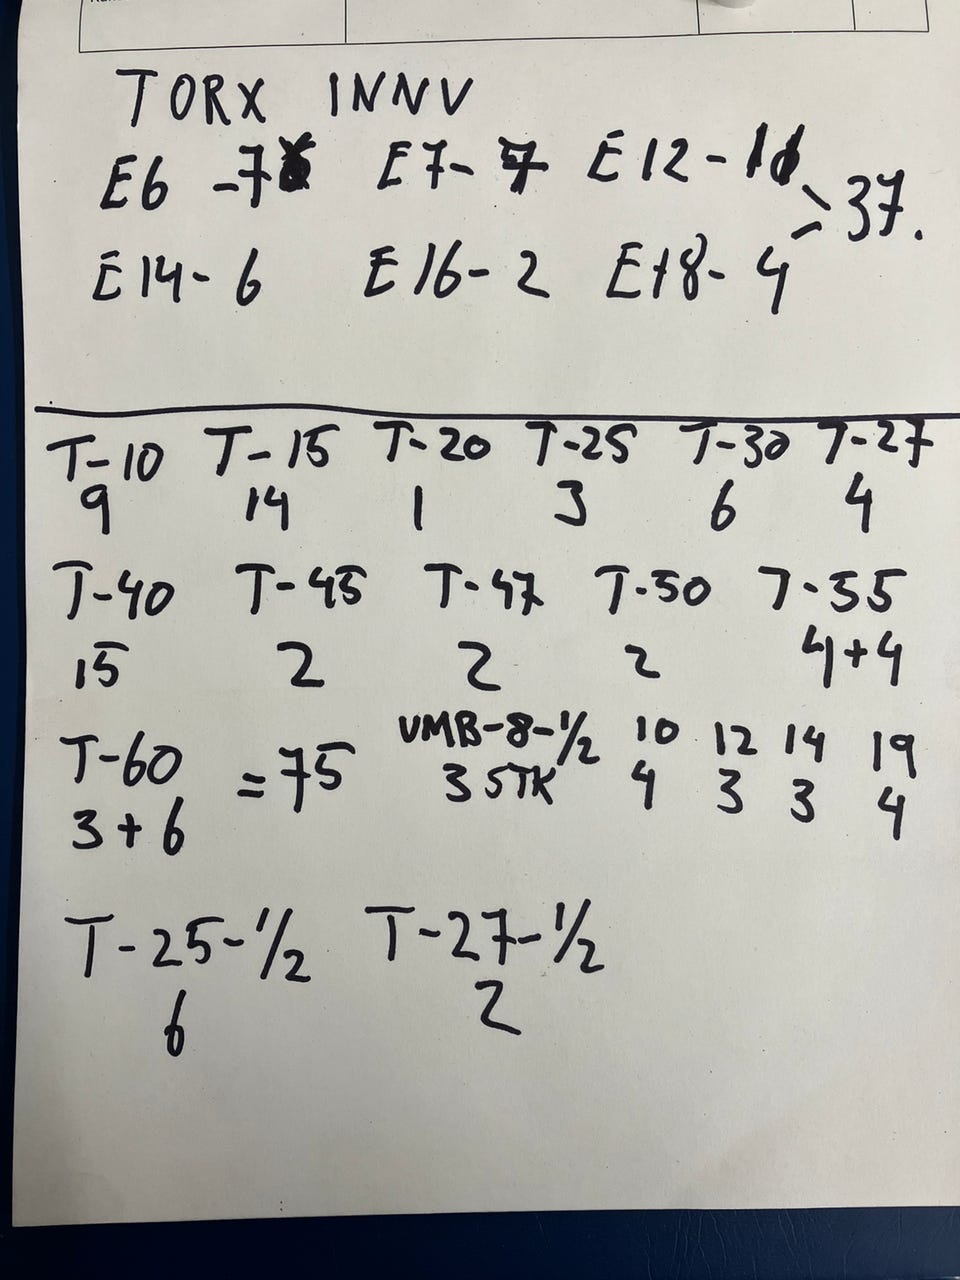 TORX INNV
E6 -7 E7- 7 E12 - 11 > 37.
E14- 6 E16- 2 E18- 4
T-10 T-15 T-20 T-25 T-30 T-27
9 14 1 3 6 4
T-40 T-45 T-47 T-50 T-55
15 2 2 2 4+4
T-60 = 75 VMB-8-1/2 10 12 14 19
3+6 3 STK 4 3 3 4
T-25-1/2 T-27-1/2
6 2